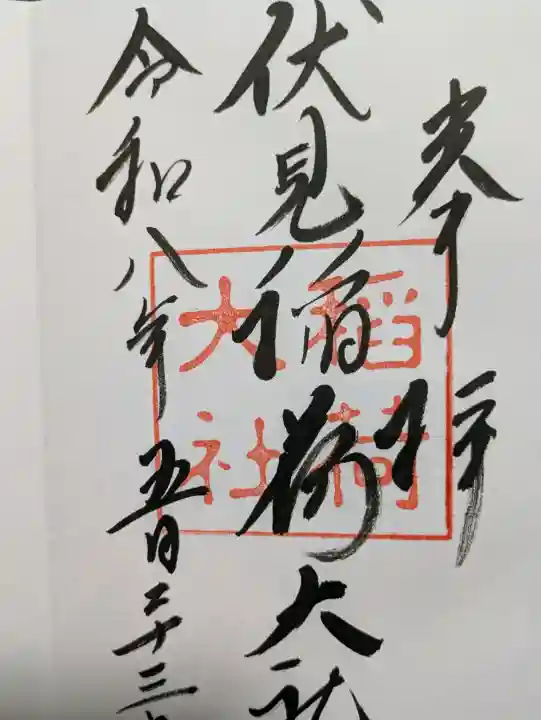 奉拝
伏見稲荷大社
令和八年五月二十三日
稲荷
大社